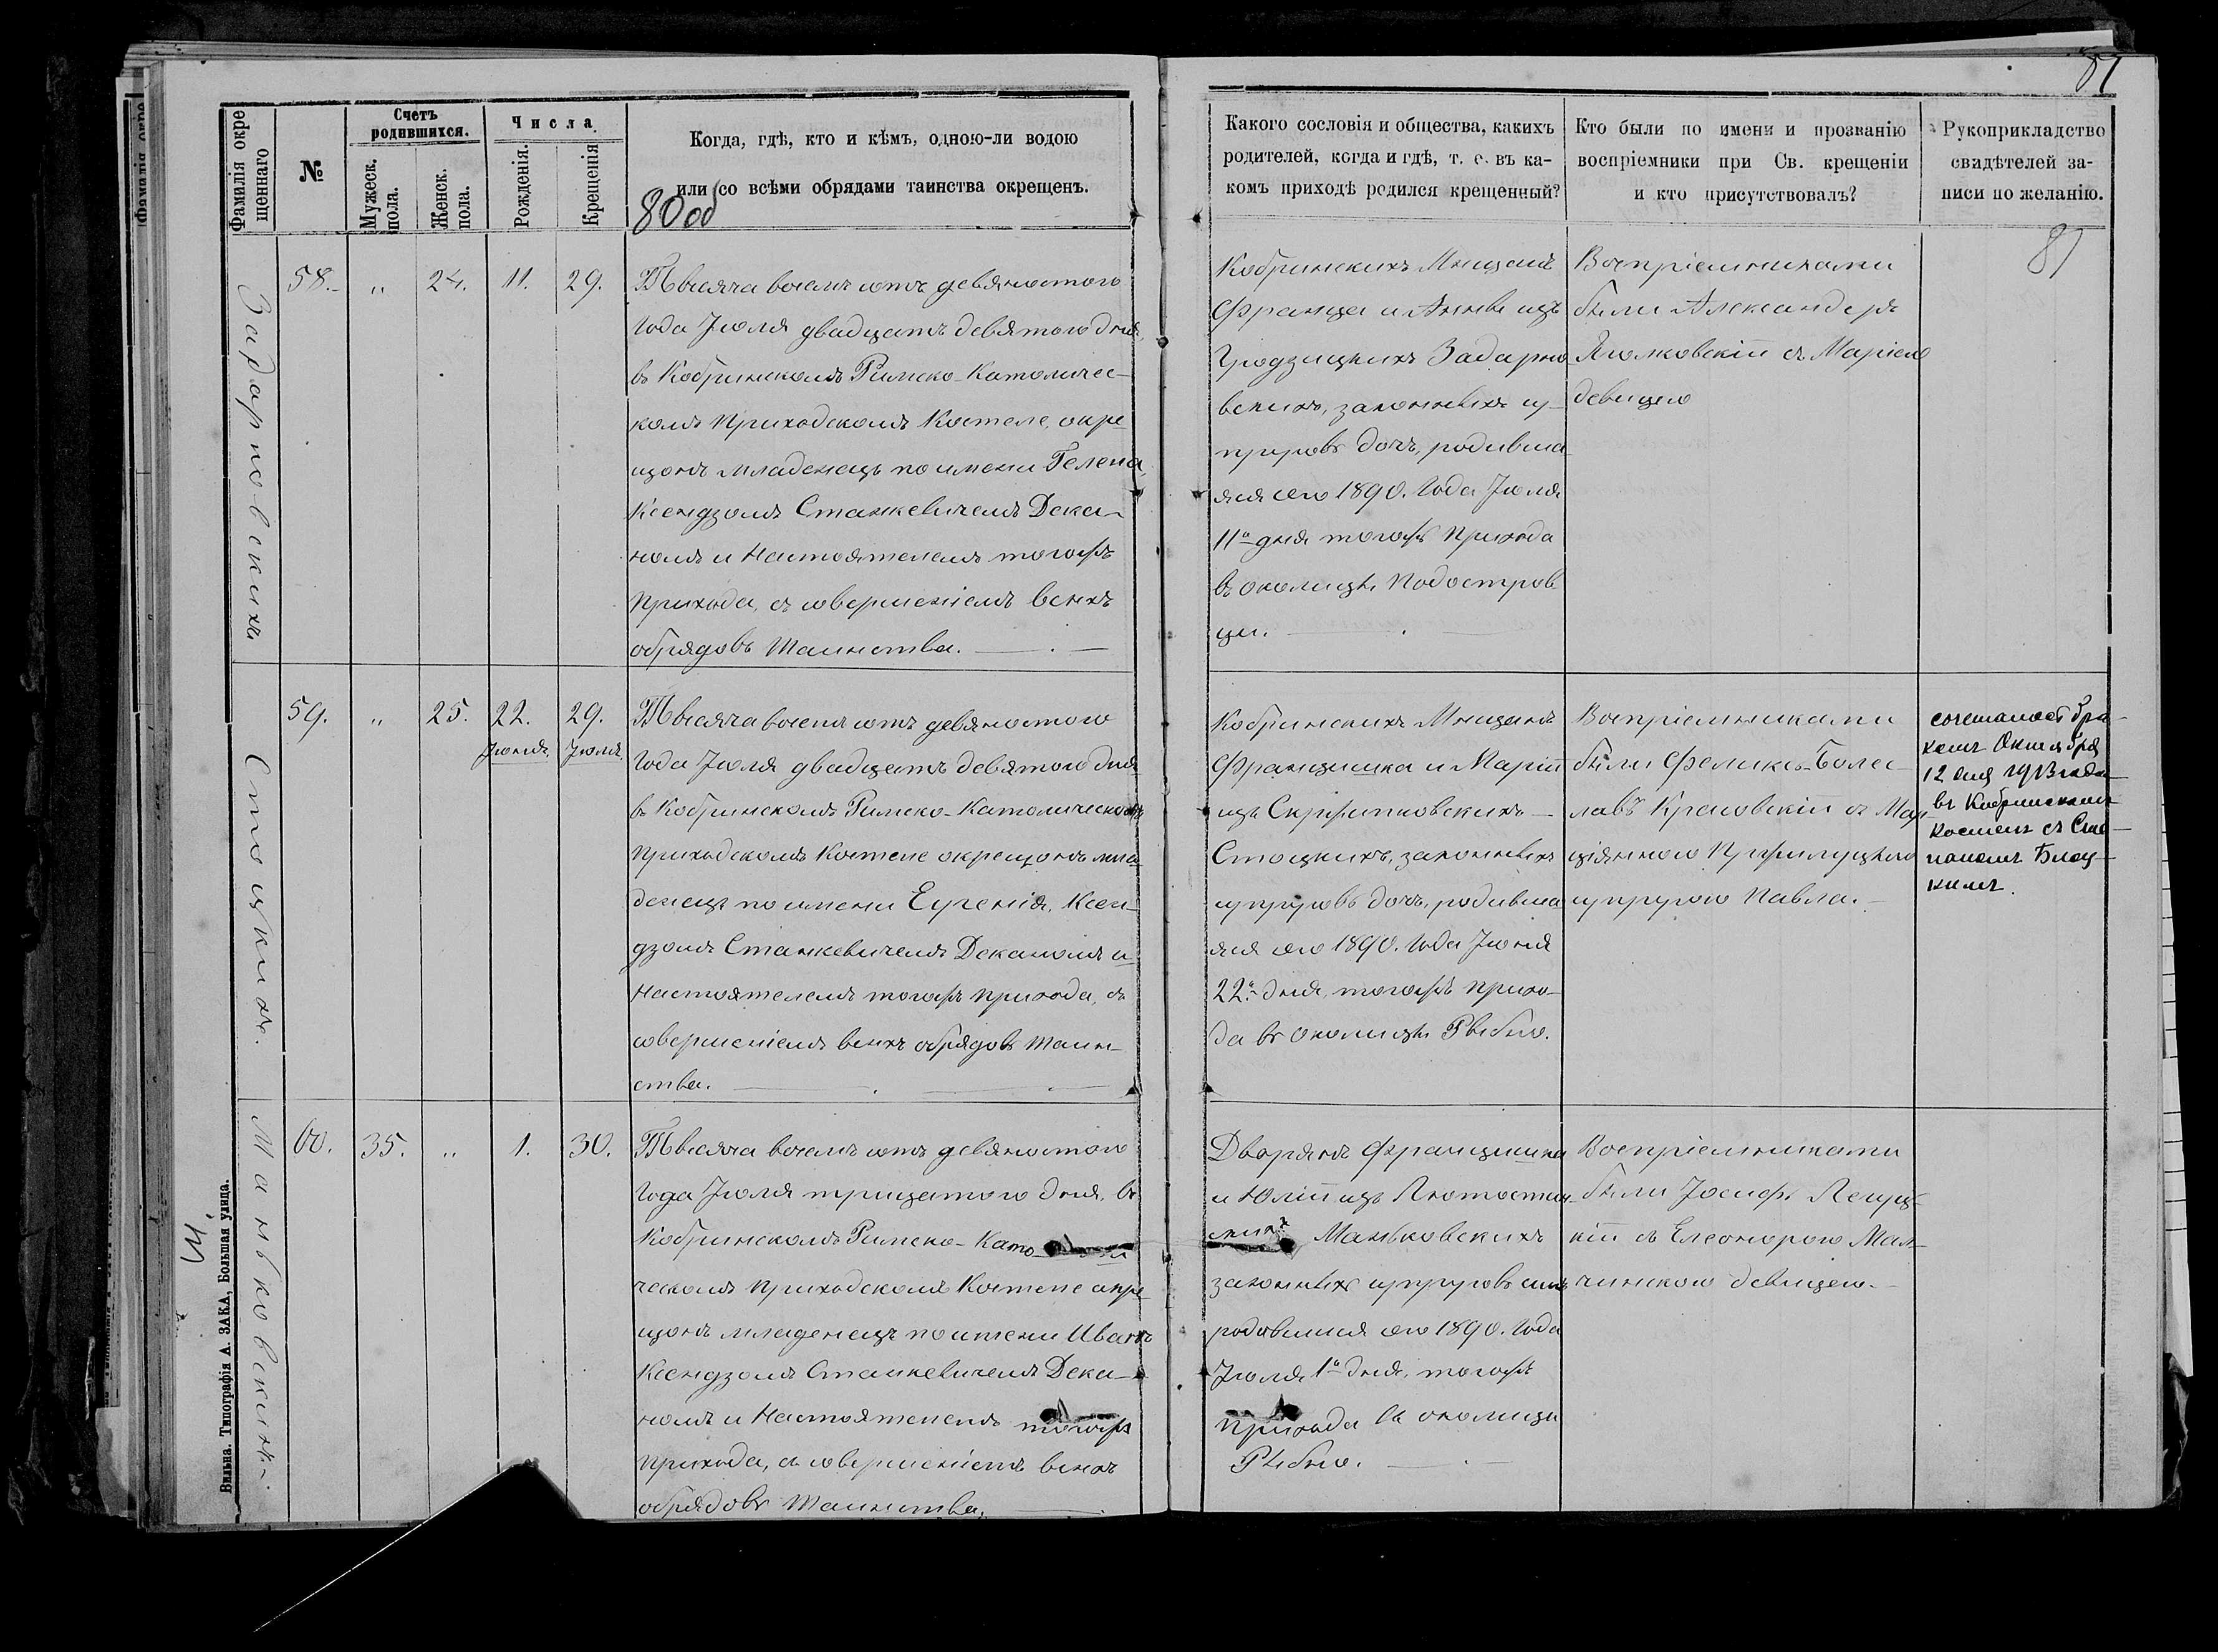 81
Фамилія окре
щеннаго
№
Счетъ
родившихся.
Мужеск.
пола.
Женск.
пола.
Числа
Рожденія.
Крещенія
Когда, гдѣ, кто и кѣмъ, одною-ли водою
или со всѣми обрядами таинства окрещенъ.
80 об
Задарновскихъ
58.
"
24.
11.
29.
Тысяча восемъ сотъ девяностого
Года Іюля двадцать девятого дня
въ Кобринскомъ Римско-Католичес-
комъ Приходскомъ Костеле, окре
щонъ младенецъ по имени Гелена,
Ксендзомъ Станкевичемъ Дека-
номъ и Настоятелемъ тогожъ
Прихода, съ совершеніемъ всѣхъ
обрядовъ Таинства.
Стоцкихъ.
59.
"
25.
22.
Іюня
29.
Іюля
Тысяча восемъ сотъ девяностого
Года Іюля двадцать девятого дня
въ Кобринскомъ Римско-Католическомъ
Приходскомъ Костеле окрещонъ мла
денецъ по имени Евгенія, Ксен-
дзомъ Станкевичемъ Деканомъ и
Настоятелемъ тогожъ Прихода, съ
совершеніемъ всѣхъ обрядовъ Таин-
ства.
Маньковскихъ.
60.
35.
"
1.
30.
Тысяча восемъ сотъ девяностого
Года Іюля тридцатого дня, въ
Кобринскомъ Римско-Като-
ческомъ Приходскомъ Костеле окре
щонъ младенецъ по имени Иванъ
Ксендзомъ Станкевичемъ Дека-
номъ и Настоятелемъ тогожъ
Прихода, съ совершеніемъ всѣхъ
обрядовъ Таинства.
Вильна. Типографія А. ЗАКА, Большая улица.
Какого сословія и общества, какихъ
родителей, когда и гдѣ, т. е. въ ка-
комъ приходѣ родился крещенный?
Кто были по имени и прозванію
воспріемники при Св. крещеніи
и кто присутствовалъ?
Рукоприкладство
свидѣтелей за-
писи по желанію.
81
Кобринскихъ Мнщанъ
Франца и Анны изъ
Гродзицкихъ Задарно
вскихъ, законныхъ су-
пруговъ дочъ, родивша
яся сего 1890. Года Іюля
11го дня тогожъ Прихода
въ околицѣ Подостров
цы.
Воспріемниками
были Александеръ
съ Маріею
девицею
Кобринскихъ Мнщанъ
Францишка и Маріи
изъ
Стоцкихъ, законныхъ
супруговъ дочъ, родивша
яся сего 1890. Года Іюня
22го дня, тогожъ прихо-
да въ околицѣ Рыбно.
Воспріемниками
были Феликсъ-Болес-
лавъ Красовскій съ Мар
супругою Павла.
сочеталась бра-
комъ Октября
12 дня 1913 года
въ Кобринскомъ
костелѣ съ Сте
паномъ Блоц-
кимъ.
Дворянъ Францишка
и Юліи изъ
Маньковскихъ
законныхъ супруговъ сынъ
родившійся сего 1890. Года
Іюля 1го дня, тогожъ
Прихода въ околицы
Рыбно.
Воспріемниками
были Іосифъ
кій съ Елеонорою Мал-
чинскою девицею.